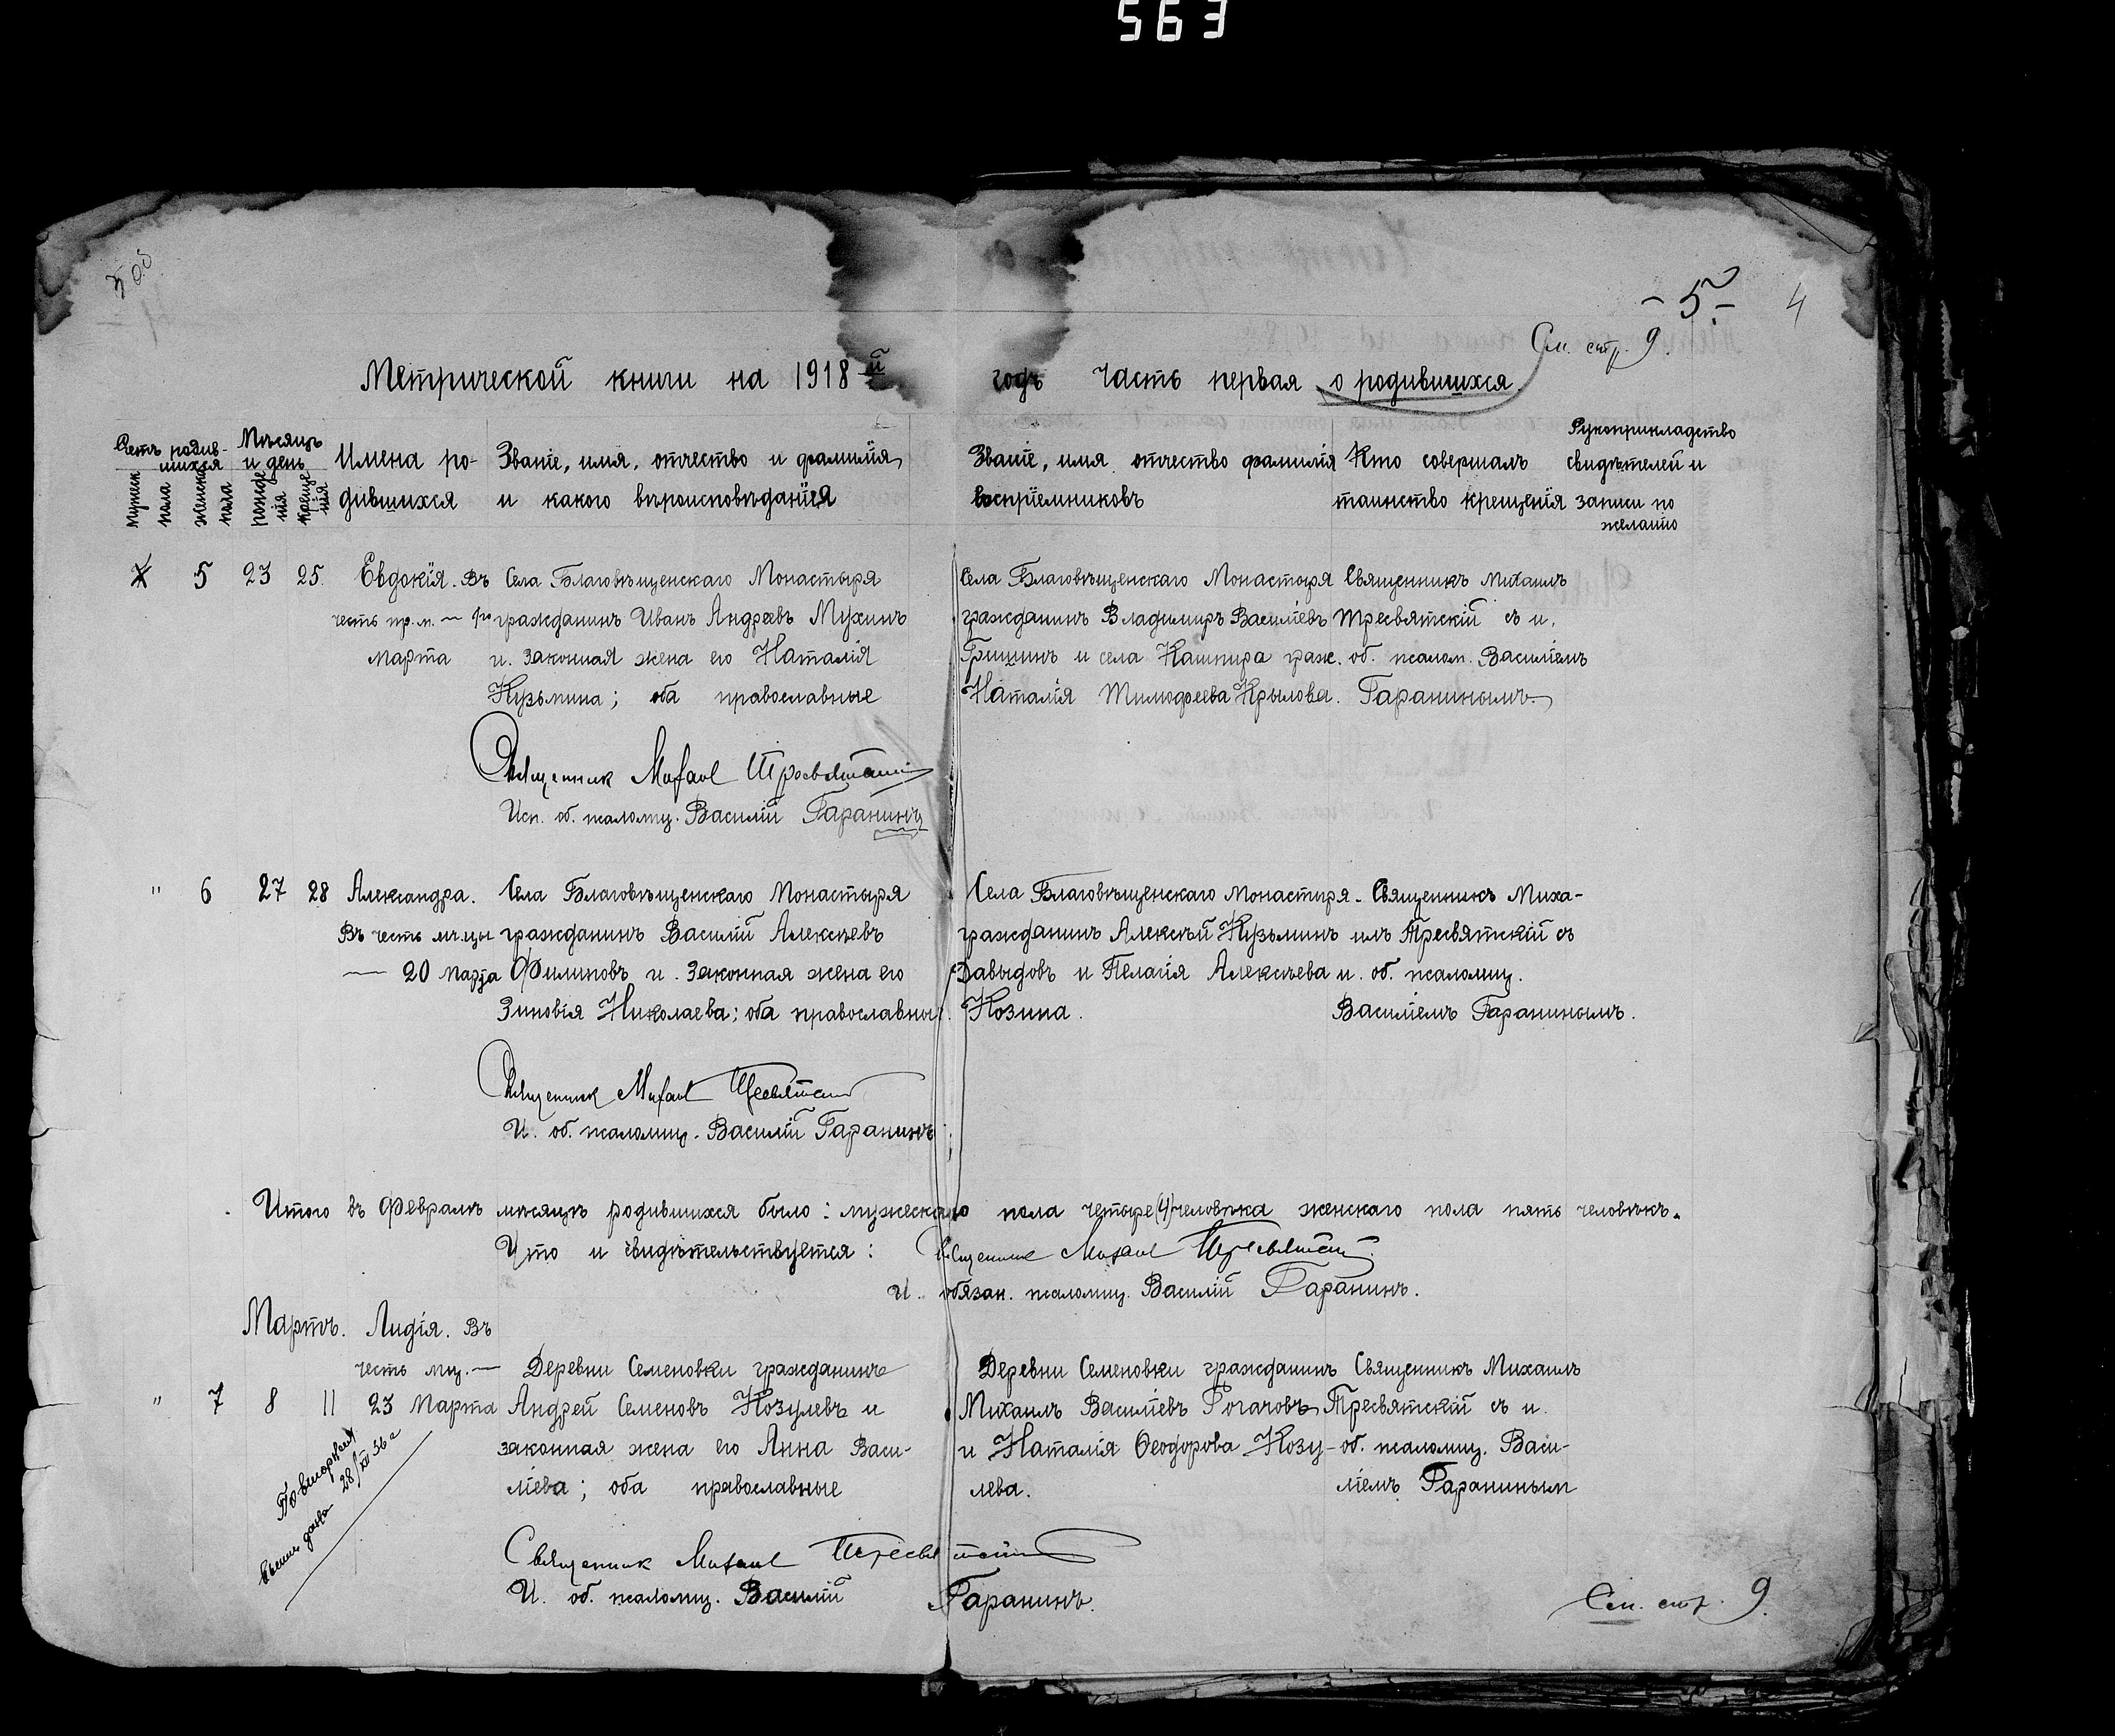 563
5 об
- 5 -
4
См. стр. 9.
Метрической книги на 1918 й годъ часть первая о родившихся.
Счетъ родив-
шихся
мужск
пола
женска
пола
Мѣсяцъ
и день
рожде
нія
креще
нія
Имена ро-
дившихся
Званіе, имя, отчество и фамилія,
и какого вѣроисповѣданія
Званіе, имя отчество фамилія
воспріемниковъ
Кто совершалъ
таинство крещенія
Рукоприкладство
свидѣтелей и
записи по
желанію
5 23 25. Евдокія. Въ Села Благовѣщенскаго Монастыря Села Благовѣщенскаго Монастыря Священникъ Михаилъ
честь пр. м. — 1го гражданинъ Иванъ Андреевъ Мухинъ гражданинъ Владимиръ Василіевъ Тресвятскій съ и.
марта и законная жена его Наталія Гришинъ и села Кашпира граж. об. псалом. Василіемъ
Кузьмина; оба православные Наталія Тимофеева Крылова. Гаранинымъ.
Священник Михаил Тресвятский
Исп. об. псаломщ. Василій Гаранинъ
" 6 27 28 Александра. Села Благовѣщенскаго Монастыря Села Благовѣщенскаго Монастыря. Священникъ Миха-
Въ честь мч-цы гражданинъ Василій Алексѣевъ гражданинъ Алексѣй Кузьминъ илъ Тресвятскій съ
— 20 марта Филиповъ и законная жена его Давыдовъ и Пелагія Алексѣева и. об. псаломщ.
Зиновія Николаева; оба православные. Козина. Василіемъ Гаранинымъ.
Священник Михаил Тресвятский
И. об. псаломщ. Василій Гаранинъ
Итого въ Февралѣ мѣсяцѣ родившихся было: мужескаго пола четыре (4) человѣка женскаго пола пять человѣкъ.
Что и свидѣтельствуется: Священник Михаил Тресвятский
И. обязан. псаломщ. Василій Гаранинъ.
Мартъ. Лидія. Въ
честь мц. — Деревни Семеновки гражданинъ Деревни Семеновки гражданинъ Священникъ Михаилъ
" 7 8 11 23 Марта Андрей Семеновъ Козулевъ и Михаилъ Василіевъ Рогачовъ Тресвятскій съ и.
законная жена его Анна Васи- и Наталія Ѳеодорова Козу- об. псаломщ. Васи-
ліева; оба православные лева. ліемъ Гаранинымъ
Повторная
выпись дана 28/XII 56 г
Священник Михаил Тресвятский
И. об. псаломщ. Василій Гаранинъ.
См. стр. 9.